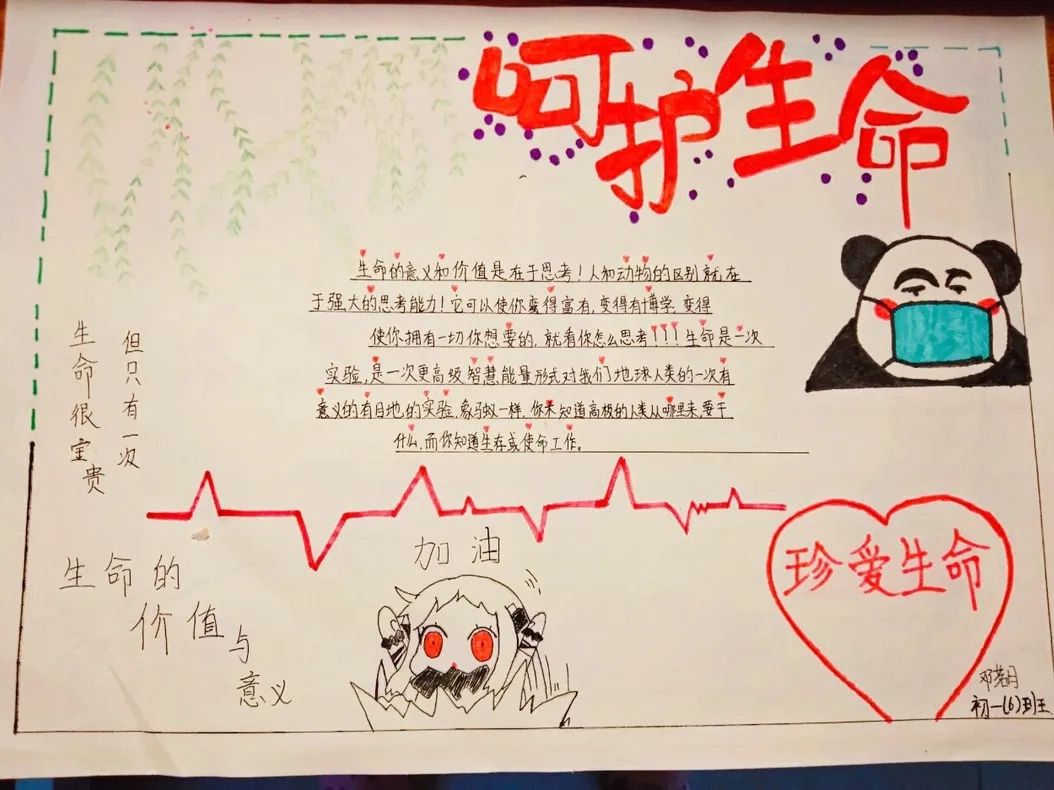 呵护生命
生命的意义和价值是在于思考！人和动物的区别就在
于强大的思考能力！它可以使你变得富有，变得有博学，变得
使你拥有一切你想要的，就看你怎么思考！！！生命是一次
实验，是一次更高级智慧能量形式对我们地球人类的一次有
意义的有目地的实验，象蚂蚁一样，你未知道高极的人类从哪里来，要干
什么，而你知道生存或使命工作。
生命很宝贵
但只有一次
加油
生命的
价值与
意义
珍爱生命
初一(6)班